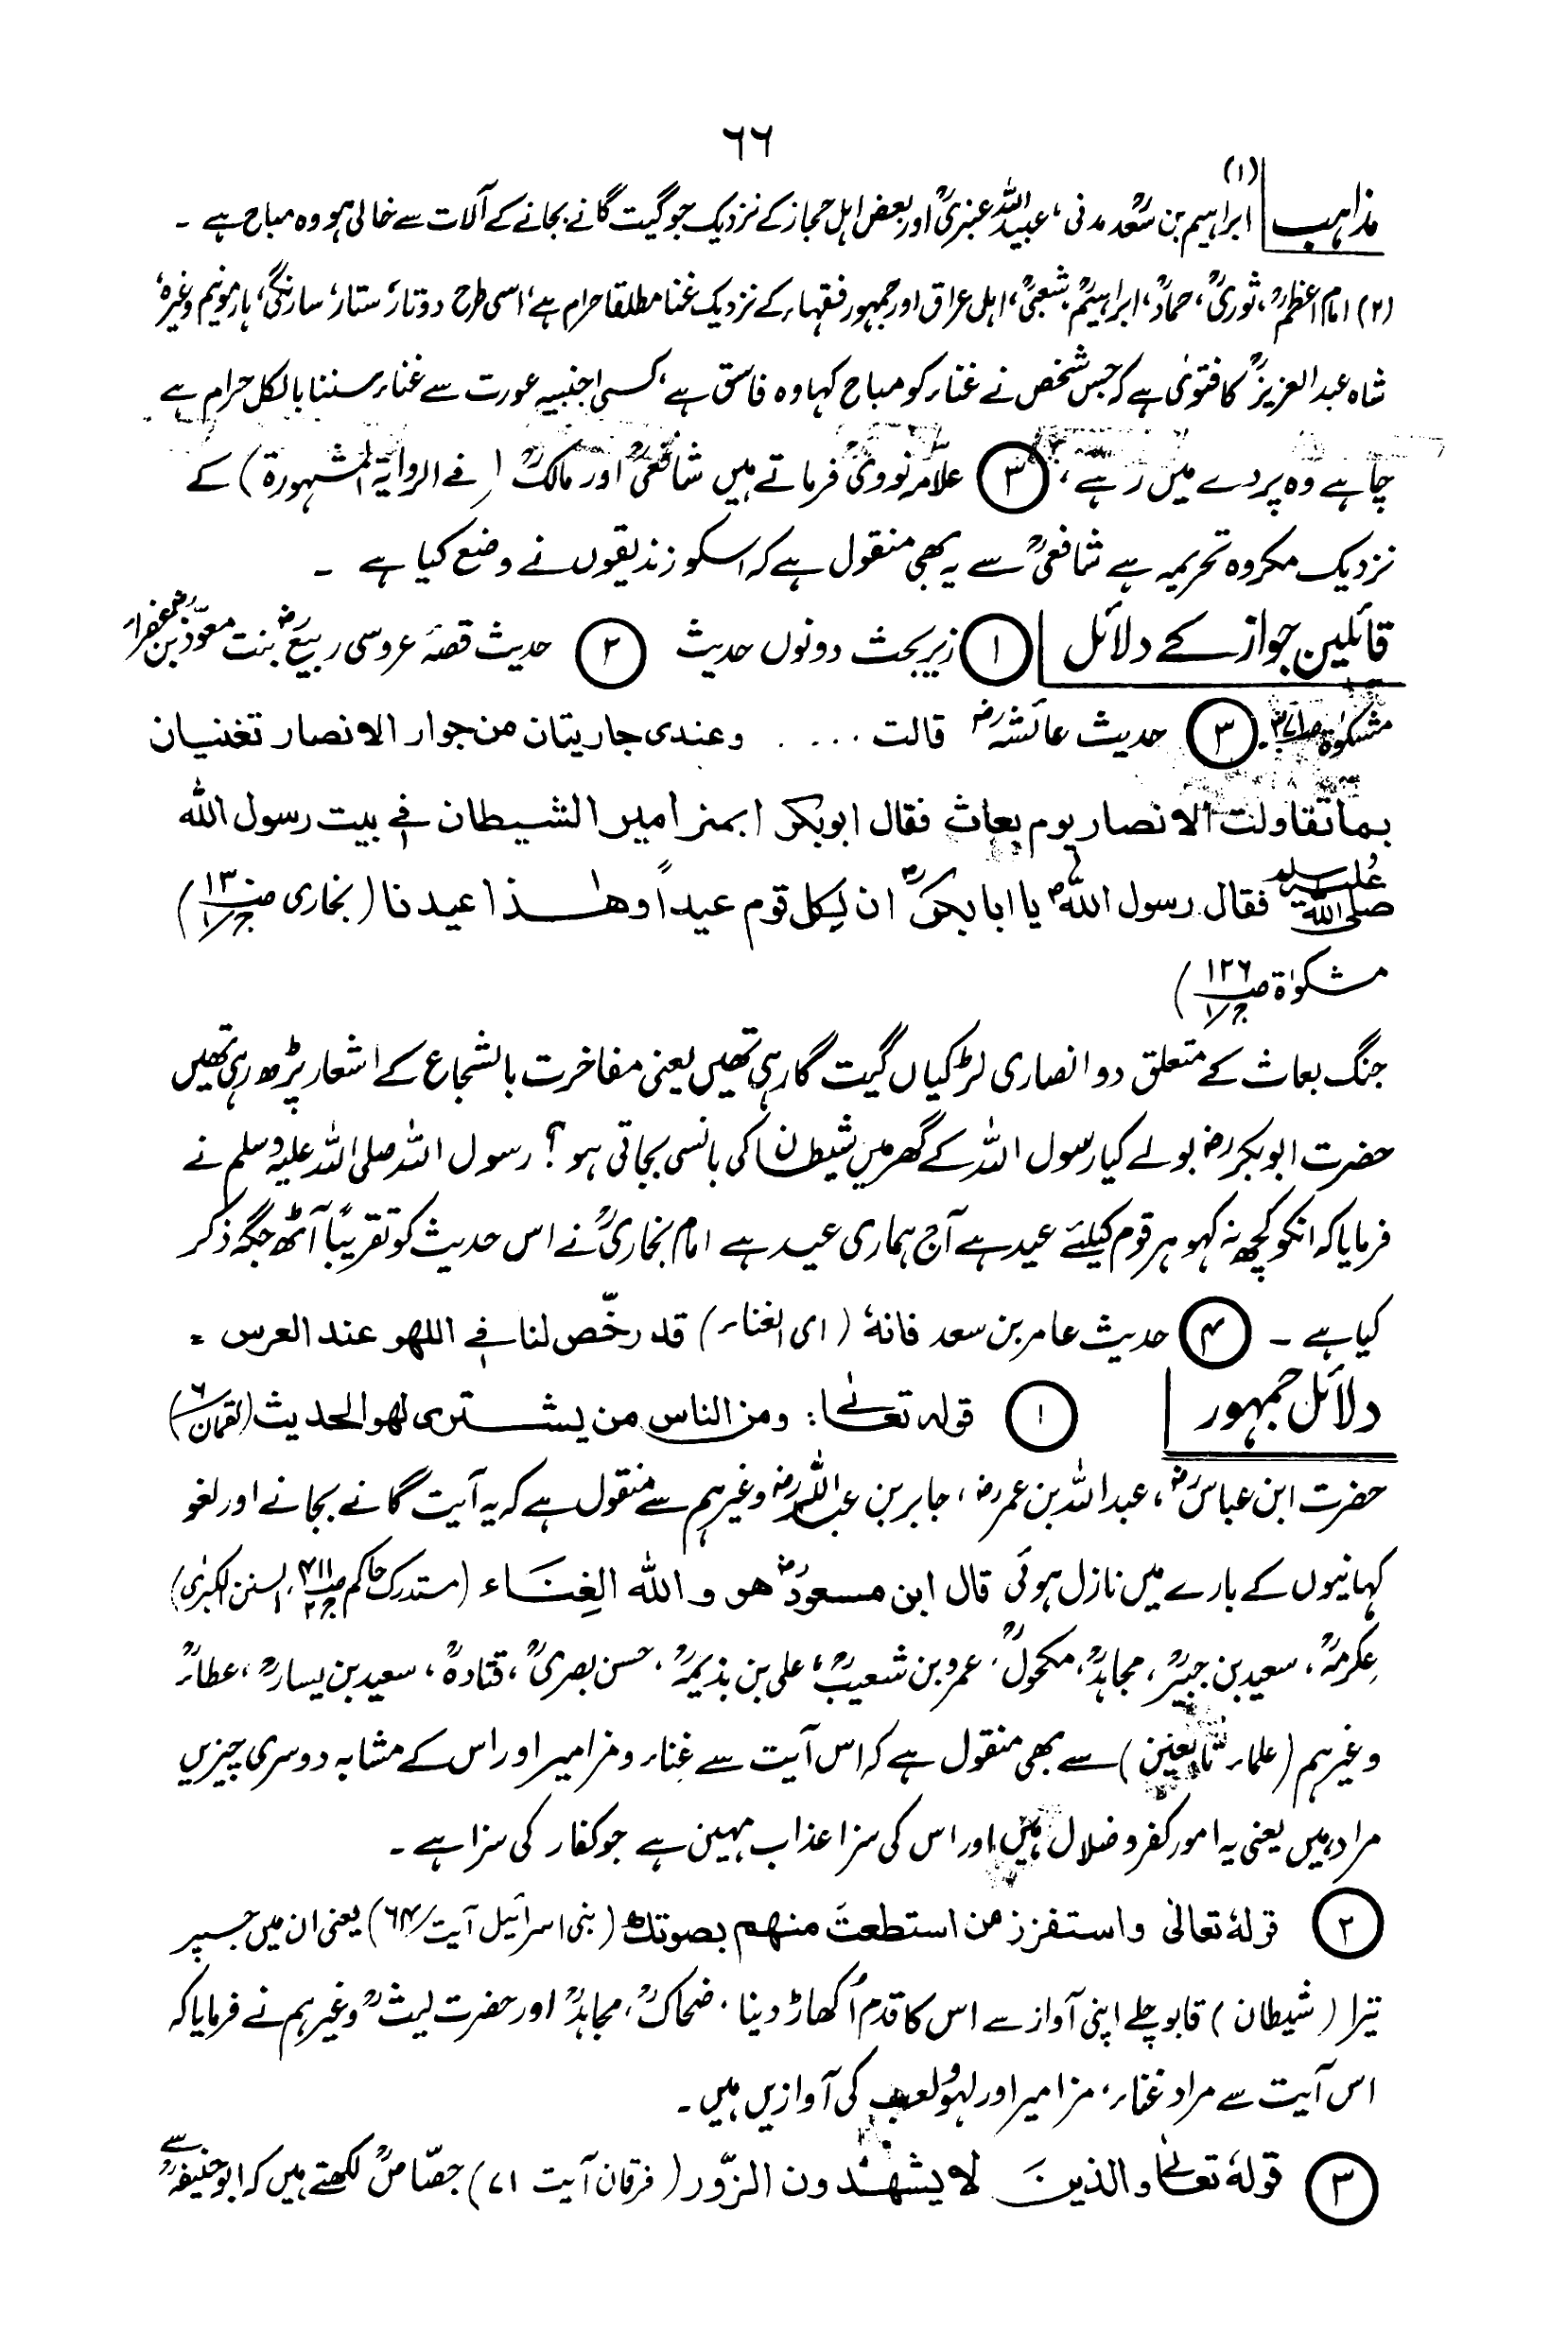 ٦٦
مذاہب (۱) ابراہیم بن سعدؒ مدنی، عبیداللہ عنبریؒ اور بعض اہل حجاز کے نزدیک جو گیت گانے بجانے کے آلات سے خالی ہو وہ مباح ہے ۔
(۲) امام اعظمؒ، ثوریؒ، حمادؒ، ابراہیمؒ، شعبیؒ، اہل عراق اور جمہور فقہاء کے نزدیک غنا مطلقا حرام ہے، اسی طرح دوتار، ستار، سارنگی، ہارمونیم وغیرہ،
شاہ عبد العزیزؒ کا فتویٰ ہے کہ جس شخص نے غناء کو مباح کہا وہ فاسق ہے، کسی اجنبیہ عورت سے غناء سننا بالکل حرام ہے
چاہے وہ پردے میں رہے، (۳) علامہ نوویؒ فرماتے ہیں شافعیؒ اور مالکؒ (فے الروایۃ المشہورۃ) کے
نزدیک مکروہ تحریمہ ہے شافعیؒ سے یہ بھی منقول ہے کہ اسکو زندیقوں نے وضع کیا ہے ۔
قائلین جواز کے دلائل (۱) زیر بحث دونوں حدیث (۲) حدیث قصۂ عروسی ربیعؓ بنت معوّذ بن عفراءؓ
مشکوٰۃ (۳) حدیث عائشہؓ قالت .... وعندی جاریتان من جوار الانصار تغنیان
بما تقاولت الانصار یوم بعاث فقال ابوبکر ابمزامیر الشیطان فے بیت رسول اللہ
صلی اللہ علیہ وسلم فقال رسول اللہؐ یا ابابکرؓ ان لکل قوم عیداً وھٰذا عیدنا (بخاری صـ۱۳۰ جـ۱)
مشکوٰۃ صـ۱۲۶ جـ۱)
جنگ بعاث کے متعلق دو انصاری لڑکیاں گیت گا رہی تھیں یعنی مفاخرت بالشجاع کے اشعار پڑھ رہی تھیں
حضرت ابوبکرؓ بولے کیا رسول اللہ کے گھر میں شیطان کی بانسی بجاتی ہو؟ رسول اللہ صلی اللہ علیہ وسلم نے
فرمایا کہ انکو کچھ نہ کہو ہر قوم کیلئے عید ہے آج ہماری عید ہے امام بخاریؒ نے اس حدیث کو تقریباً آٹھ جگہ ذکر
کیا ہے ۔ (۴) حدیث عامر بن سعد فانہٗ (ای الغناء) قد رخّص لنا فے اللھو عند العرس ۔
دلائل جمہور (۱) قولہ تعالےٰ: ومن الناس من یشتری لھو الحدیث (لقمان ۶)
حضرت ابن عباسؓ، عبداللہ بن عمرؓ، جابر بن عبداللہؓ وغیرہم سے منقول ہے کہ یہ آیت گانے بجانے اور لغو
کہانیوں کے بارے میں نازل ہوئی قال ابن مسعودؓ ھو واللہ الغِنَاء (مستدرک حاکم صـ۴۱۱ جـ۲، السنن الکبریٰ)
عکرمہؒ، سعید بن جبیرؒ، مجاہدؒ، مکحولؒ، عمرو بن شعیبؒ، علی بن بذیمہؒ، حسن بصریؒ، قتادہؒ، سعید بن یسارؒ، عطاءؒ
وغیرہم (علماء تابعین) سے بھی منقول ہے کہ اس آیت سے غناء ومزامیر اور اس کے مشابہ دوسری چیزیں
مراد ہیں یعنی یہ امور کفر وضلال ہیں اور اس کی سزا عذاب مہین ہے جو کفار کی سزا ہے ۔
(۲) قولہٗ تعالیٰ واستفزز من استطعتَ منھم بصوتك (بنی اسرائیل آیت ۶۴) یعنی ان میں جسپر
تیرا (شیطان) قابو چلے اپنی آواز سے اس کا قدم اُکھاڑ دینا، ضحاکؒ، مجاہدؒ اور حضرت لیثؒ وغیرہم نے فرمایا کہ
اس آیت سے مراد غناء، مزامیر اور لہو ولعب کی آوازیں ہیں ۔
(۳) قولہٗ تعالےٰ والذینَ لا یشھدون الزّور (فرقان آیت ۷۱) جصّاصؒ لکھتے ہیں کہ ابو حنیفہؒ سے